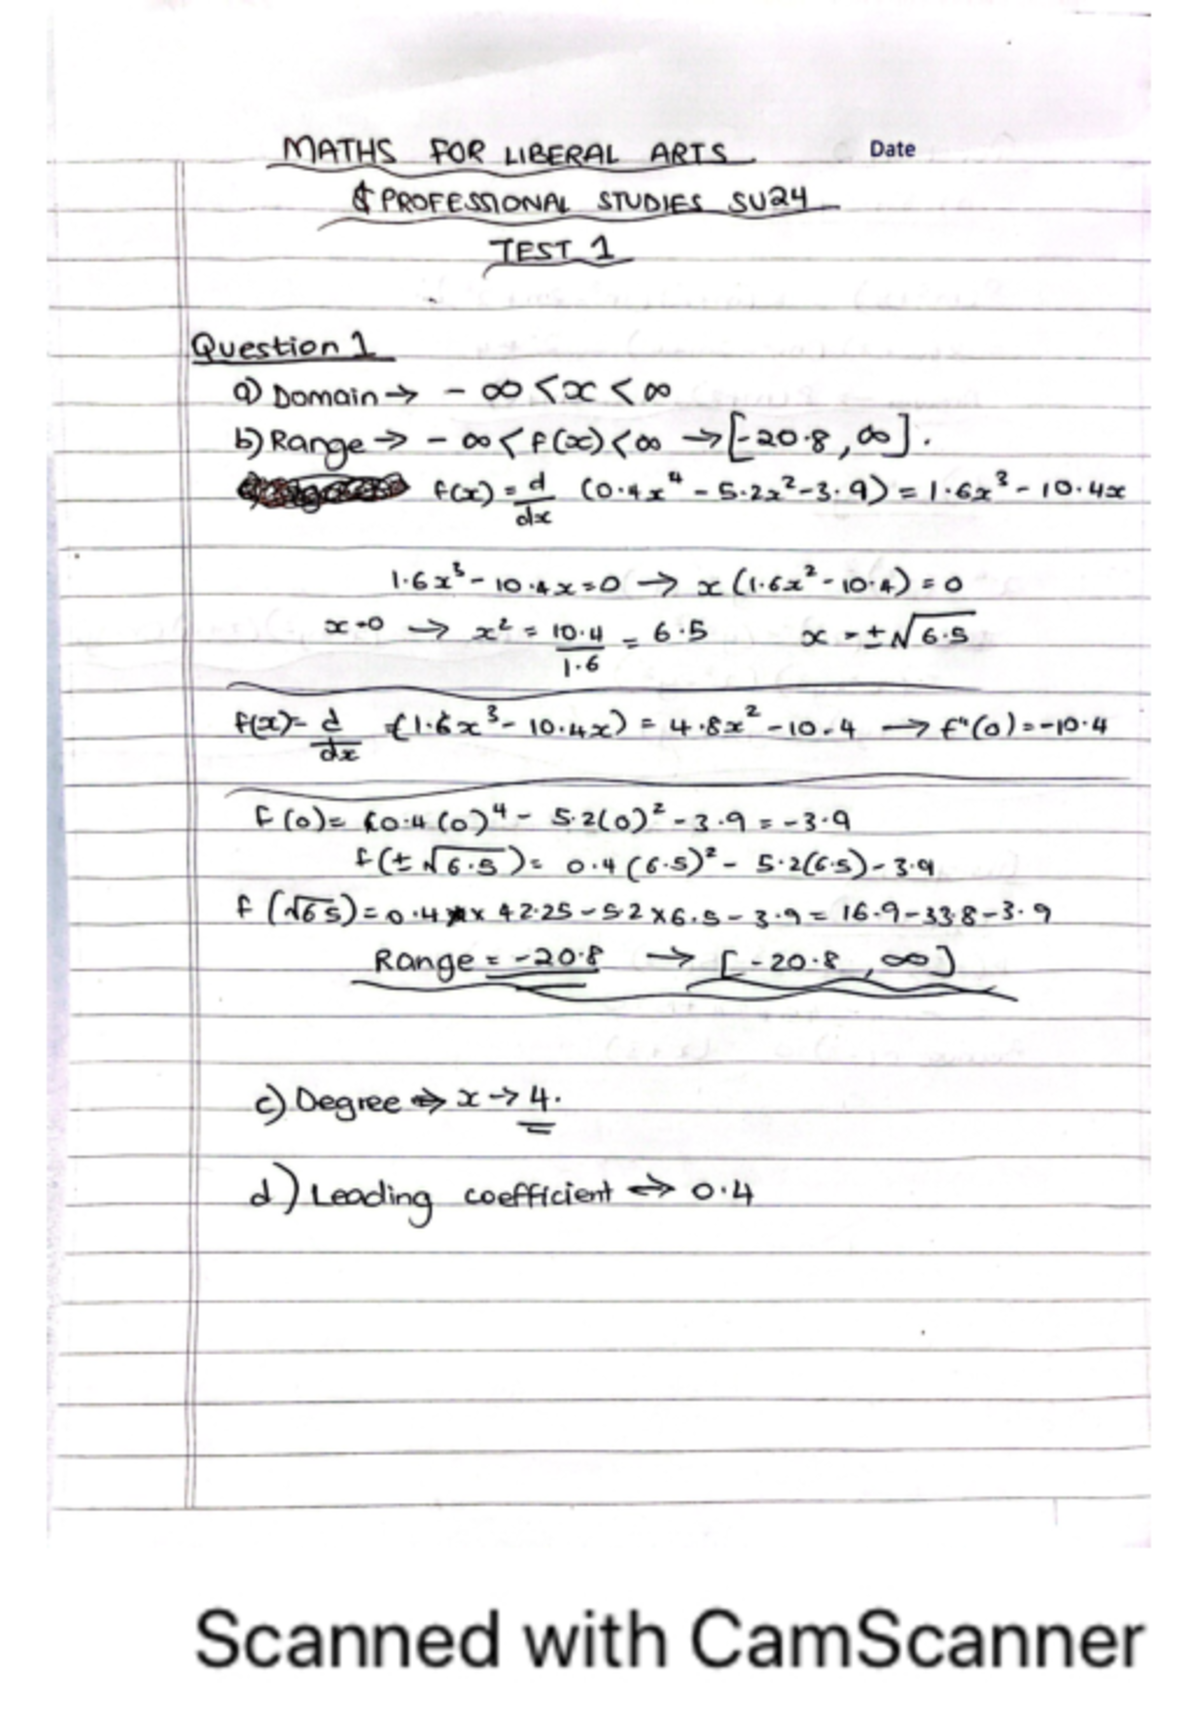 MATHS FOR LIBERAL ARTS Date
& PROFESSIONAL STUDIES SU24
TEST 1
Question 1
a) Domain → - ∞ < x < ∞
b) Range → - ∞ < f(x) < ∞ → [-20.8, ∞].
f(x) = d/dx (0.4x⁴ - 5.2x² - 3.9) = 1.6x³ - 10.4x
1.6x³ - 10.4x = 0 → x (1.6x² - 10.4) = 0
x = 0 → x² = 10.4/1.6 = 6.5 x = ±√6.5
f(x) = d/dx (1.6x³ - 10.4x) = 4.8x² - 10.4 → f"(0) = -10.4
f(0) = (0.4(0)⁴ - 5.2(0)² - 3.9 = -3.9
f(±√6.5) = 0.4(6.5)² - 5.2(6.5) - 3.9
f(√6.5) = 0.4 x 42.25 - 5.2 x 6.5 - 3.9 = 16.9 - 33.8 - 3.9
Range = -20.8 → [-20.8, ∞]
c) Degree ⇒ x → 4.
d) Leading coefficient ⇒ 0.4
Scanned with CamScanner